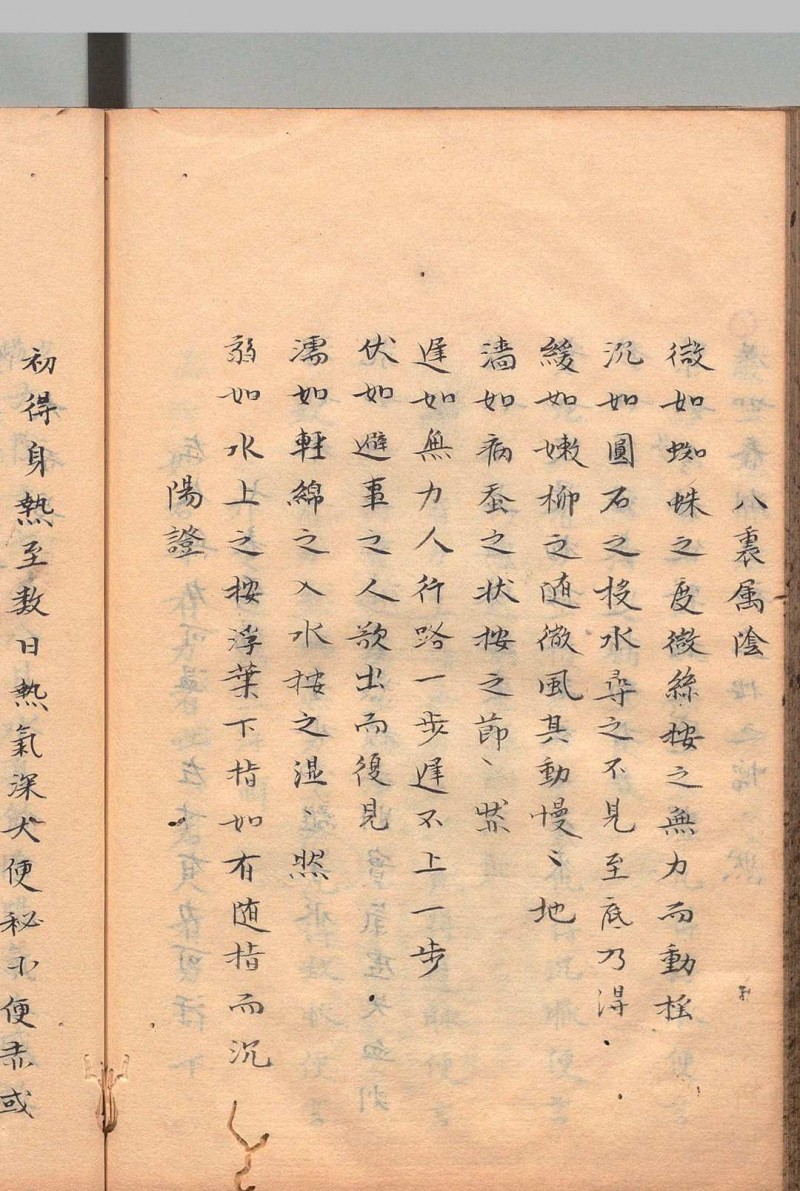 八裏属陰
微如蜘蛛之度微絲按之無力而動揺
沉如圓石之投水尋之不見至底乃淂
緩如嫩柳之随微風其動慢〻地
濇如病蚕之状按之節〻然
遅如無力人行路一步遅不上一步
伏如避事之人欲出而復見
濡如軽綿之入水按之湿〻然
弱如水上之按浮葉下指如有随指而沉
陽證
初得身熱至数日熱氣深大便秘小便赤或